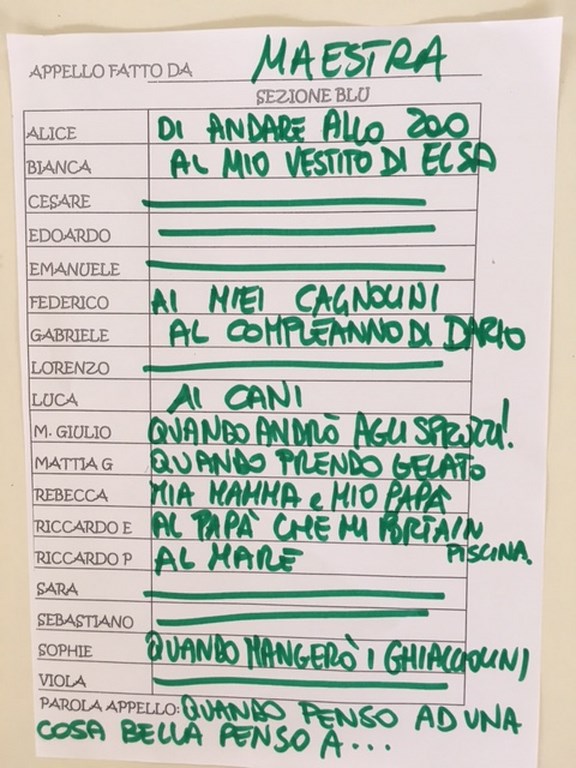 APPELLO FATTO DA MAESTRA
SEZIONE BLU
ALICE DI ANDARE ALLO ZOO
BIANCA AL MIO VESTITO DI ELSA
CESARE
EDOARDO
EMANUELE
FEDERICO AI MIEI CAGNOLINI
GABRIELE AL COMPLEANNO DI DARIO
LORENZO
LUCA AI CANI
M. GIULIO QUANDO ANDRÒ AGLI SPRUZZI!
MATTIA G QUANDO PRENDO GELATO
REBECCA MIA MAMMA e MIO PAPÀ
RICCARDO E AL PAPÀ CHE MI PORTA IN
PISCINA.
RICCARDO P AL MARE
SARA
SEBASTIANO
SOPHIE QUANDO MANGERÒ I GHIACCIOLINI
VIOLA
PAROLA APPELLO: QUANDO PENSO AD UNA
COSA BELLA PENSO A...